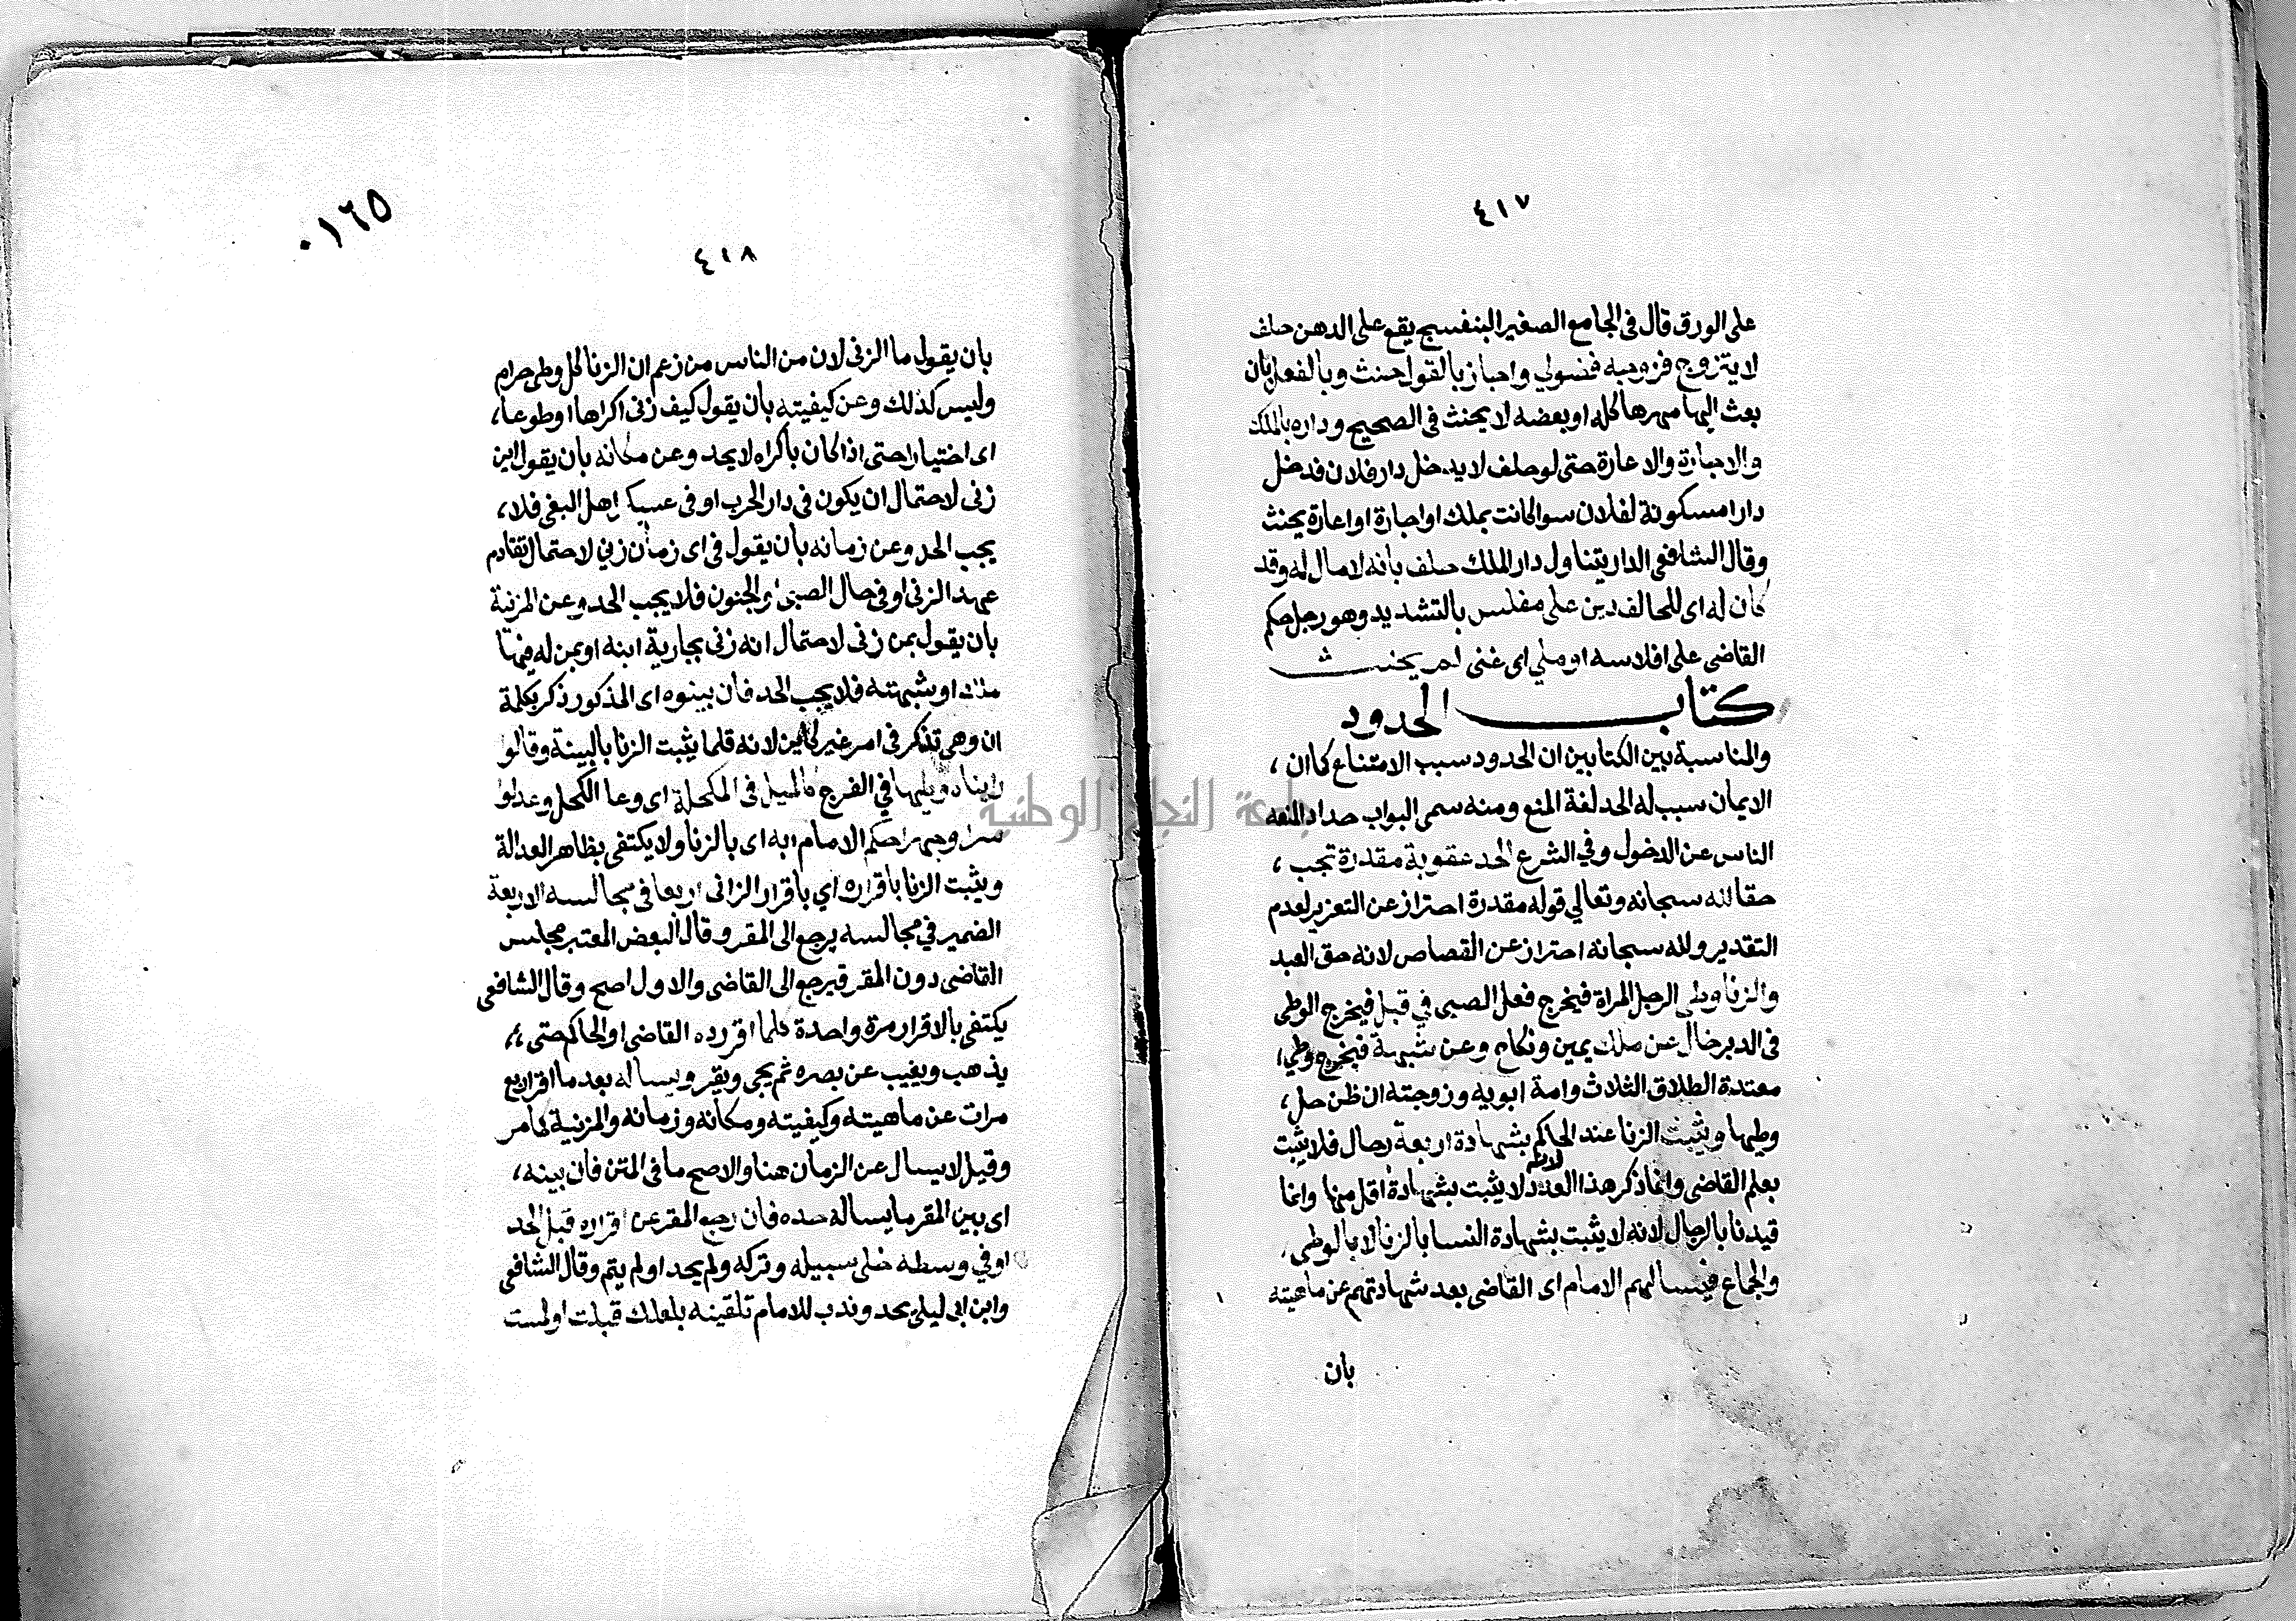 ٤١٧
على الورق قال فى الجامع الصغير البنفسج يقع على الدهن حلف
لا يتزوج فزوجه فضولي واجاز بالقول حنث وبالفعل بان
بعث اليها مهرها كله او بعضه لا يحنث فى الصحيح وداره بالملك
والاجارة والاعارة حتى لو حلف لا يدخل دار فلان فدخل
دارا مسكونة لفلان سوا كانت بملك او اجارة او اعارة يحنث
وقال الشافعى الدار يتناول دار الملك حلف بانه لا مال له وقد
كان له اى للحالف دين على مفلس بالتشديد وهو رجل حكم
القاضى على افلاسه او ملي اى غنى لم يحنث
كتاب الحدود
والمناسبة بين الكتابين ان الحدود سبب الامتناع كما ان ،
الايمان سبب له الحد لغة المنع ومنه سمى البواب حدادا لمنعه
الناس عن الدخول وفي الشرع الحد عقوبة مقدرة تجب ،
حقا لله سبحانه وتعالي قوله مقدرة احتراز عن التعزير لعدم
التقدير ولله سبحانه احتراز عن القصاص لانه حق العبد
والزنا وطى الرجل المراة فيخرج فعل الصبى في قبل فيخرج الوطى
فى الدبر خال عن ملك يمين ونكاح وعن شبهة فيخرج وطي ،
معتدة الطلاق الثلاث وامة ابويه وزوجته ان ظن حل ،
وطيها ويثبت الزنا عند الحاكم بشهادة اربعة رجال فلا يثبت
بعلم القاضى وانما ذكر هذا العدد لانه لا يثبت بشهادة اقل منها وانما
قيدنا بالرجال لانه لا يثبت بشهادة النسا بالزنا لا بالوطى
والجماع فيسالهم الامام اى القاضى بعد شهادتهم عن ماهيته
بان
٠١٦٥
٤١٨
بان يقول ما الزنى لان من الناس من زعم ان الزنا كل وطى حرام
وليس كذلك وعن كيفيته بان يقول كيف زنى اكراها او طوعا ،
اى اختيارا حتى اذا كان باكراه لا يحد وعن مكانه بان يقول اين
زنى لاحتمال ان يكون فى دار الحرب او فى عسكر اهل البغى فلا ،
يجب الحد وعن زمانه بان يقول فى اى زمان زني لاحتمال تقادم
عهد الزنى او فى حال الصبى او الجنون فلا يجب الحد وعن المزنية
بان يقول بمن زنى لاحتمال انه زنى بجارية ابنه او بمن له فيها
ملك او شبهته فلا يجب الحد فان بينوه اى المذكور ذكر بكلمة
ان وهى تذكر فى امر غير كاين لانه قلما يثبت الزنا بالبينة وقالوا
رايناه وطيها في الفرج كالميل فى المكحلة اى وعا الكحل وعدلوا
سرا وجهرا حكم الامام به اى بالزنا ولا يكتفى بظاهر العدالة
ويثبت الزنا باقراره اي باقرار الزانى اربعا فى مجالسه الاربعة
الضمير في مجالسه يرجع الى المقر وقال البعض المعتبر مجلس
القاضى دون المقر فيرجع الى القاضى والاول اصح وقال الشافعى
يكتفى بالاقرار مرة واحدة كلما اقر رده القاضى او الحاكم حتى ،،
يذهب ويغيب عن بصره ثم يجى ويقر ويساله بعد ما اقر اربع
مرات عن ماهيته وكيفيته ومكانه وزمانه والمزنية كما مر
وقيل لا يسال عن الزمان هنا والاصح ما فى المتن فان بينه ،
اى بين المقر ما يساله حده فان رجع المقر عن اقراره قبل الحد
او في وسطه خلى سبيله وتركه ولم يحد او لم يتم وقال الشافعى
وابن ابى ليلى يحد وندب للامام تلقينه بلعلك قبلت او لمست
جامعة النجاح الوطنية